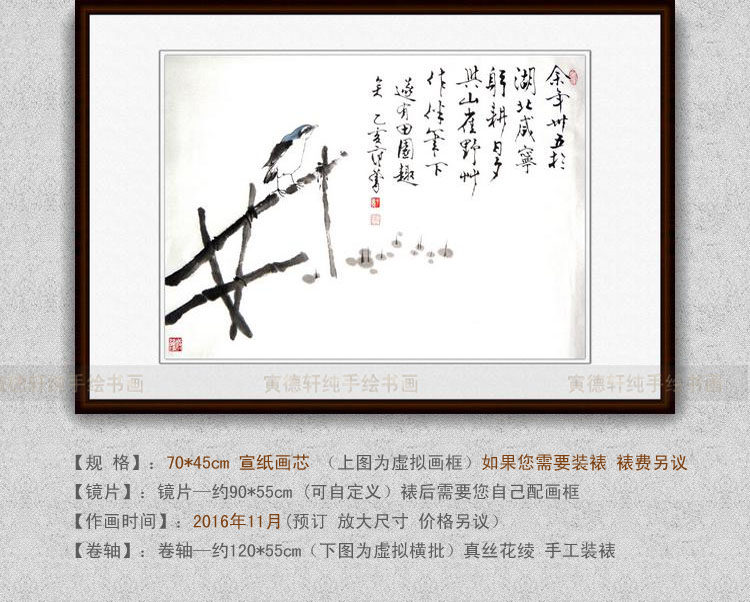 余年卅五於
湖北咸寧
躬耕日夕
與山雀野艸
作伴筆下
遂有田園趣
矣 乙亥
寅德轩纯手绘书画
寅德轩纯手绘书画
寅德轩纯手绘书画
【规 格】：70*45cm 宣纸画芯 （上图为虚拟画框）如果您需要装裱 裱费另议
【镜片】：镜片—约90*55cm (可自定义）裱后需要您自己配画框
【作画时间】：2016年11月(预订 放大尺寸 价格另议）
【卷轴】：卷轴—约120*55cm（下图为虚拟横批）真丝花绫 手工装裱